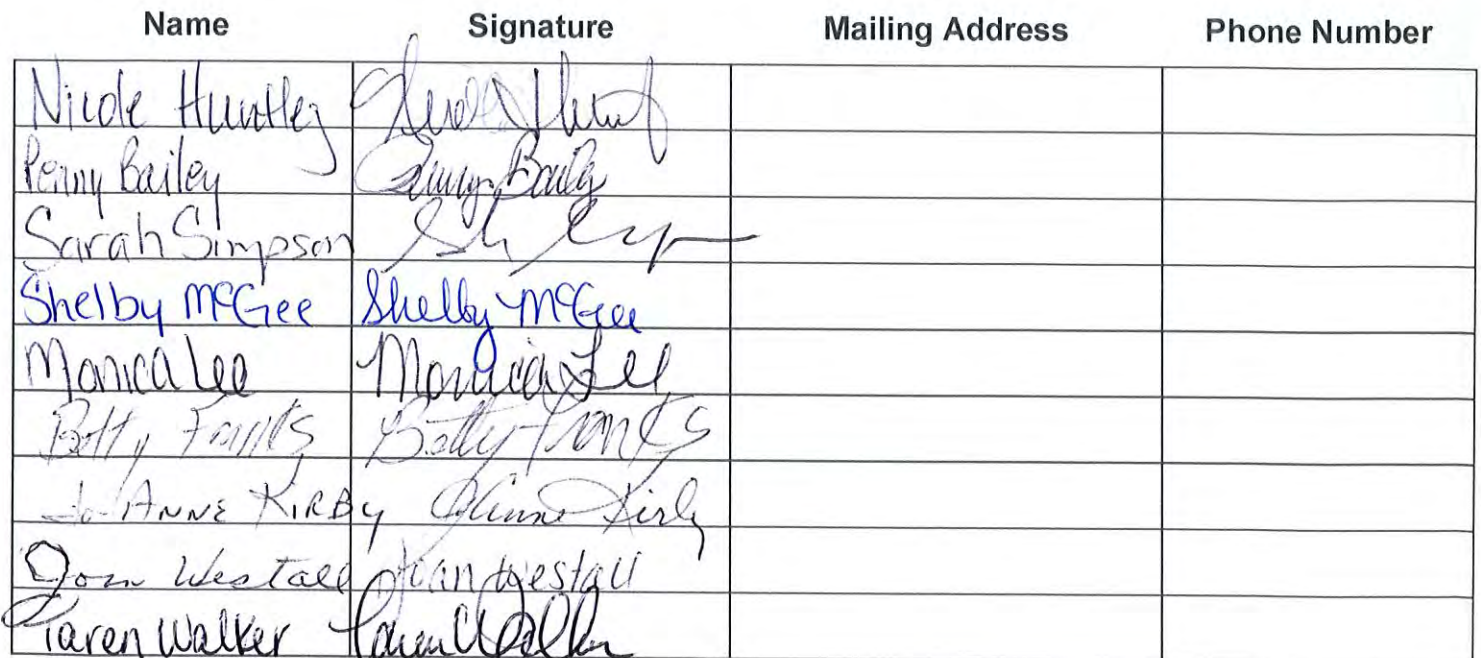 Name Signature Mailing Address Phone Number
Nicole Huntley
Penny Bailey Penny Baily
Sarah Simpson
Shelby McGee Shelby McGee
Monica Lee Monica Lee
Betty Franks Betty Franks
Jo ANNE KIRBY JoAnne Kirby
Joan Westall Joan Westall
Karen Walker Karen Walker